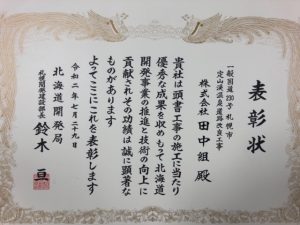 表彰状
一般国道230号 札幌市
定山渓温泉道路改良工事
株式会社 田中組 殿
貴社は頭書工事の施工に当たり
優秀な成果を収めもって北海道
開発事業の推進と技術の向上に
貢献されその功績は誠に顕著な
ものがあります
よってここにこれを表彰します
令和二年七月二十九日
北海道開発局
札幌開発建設部長 鈴木 亘